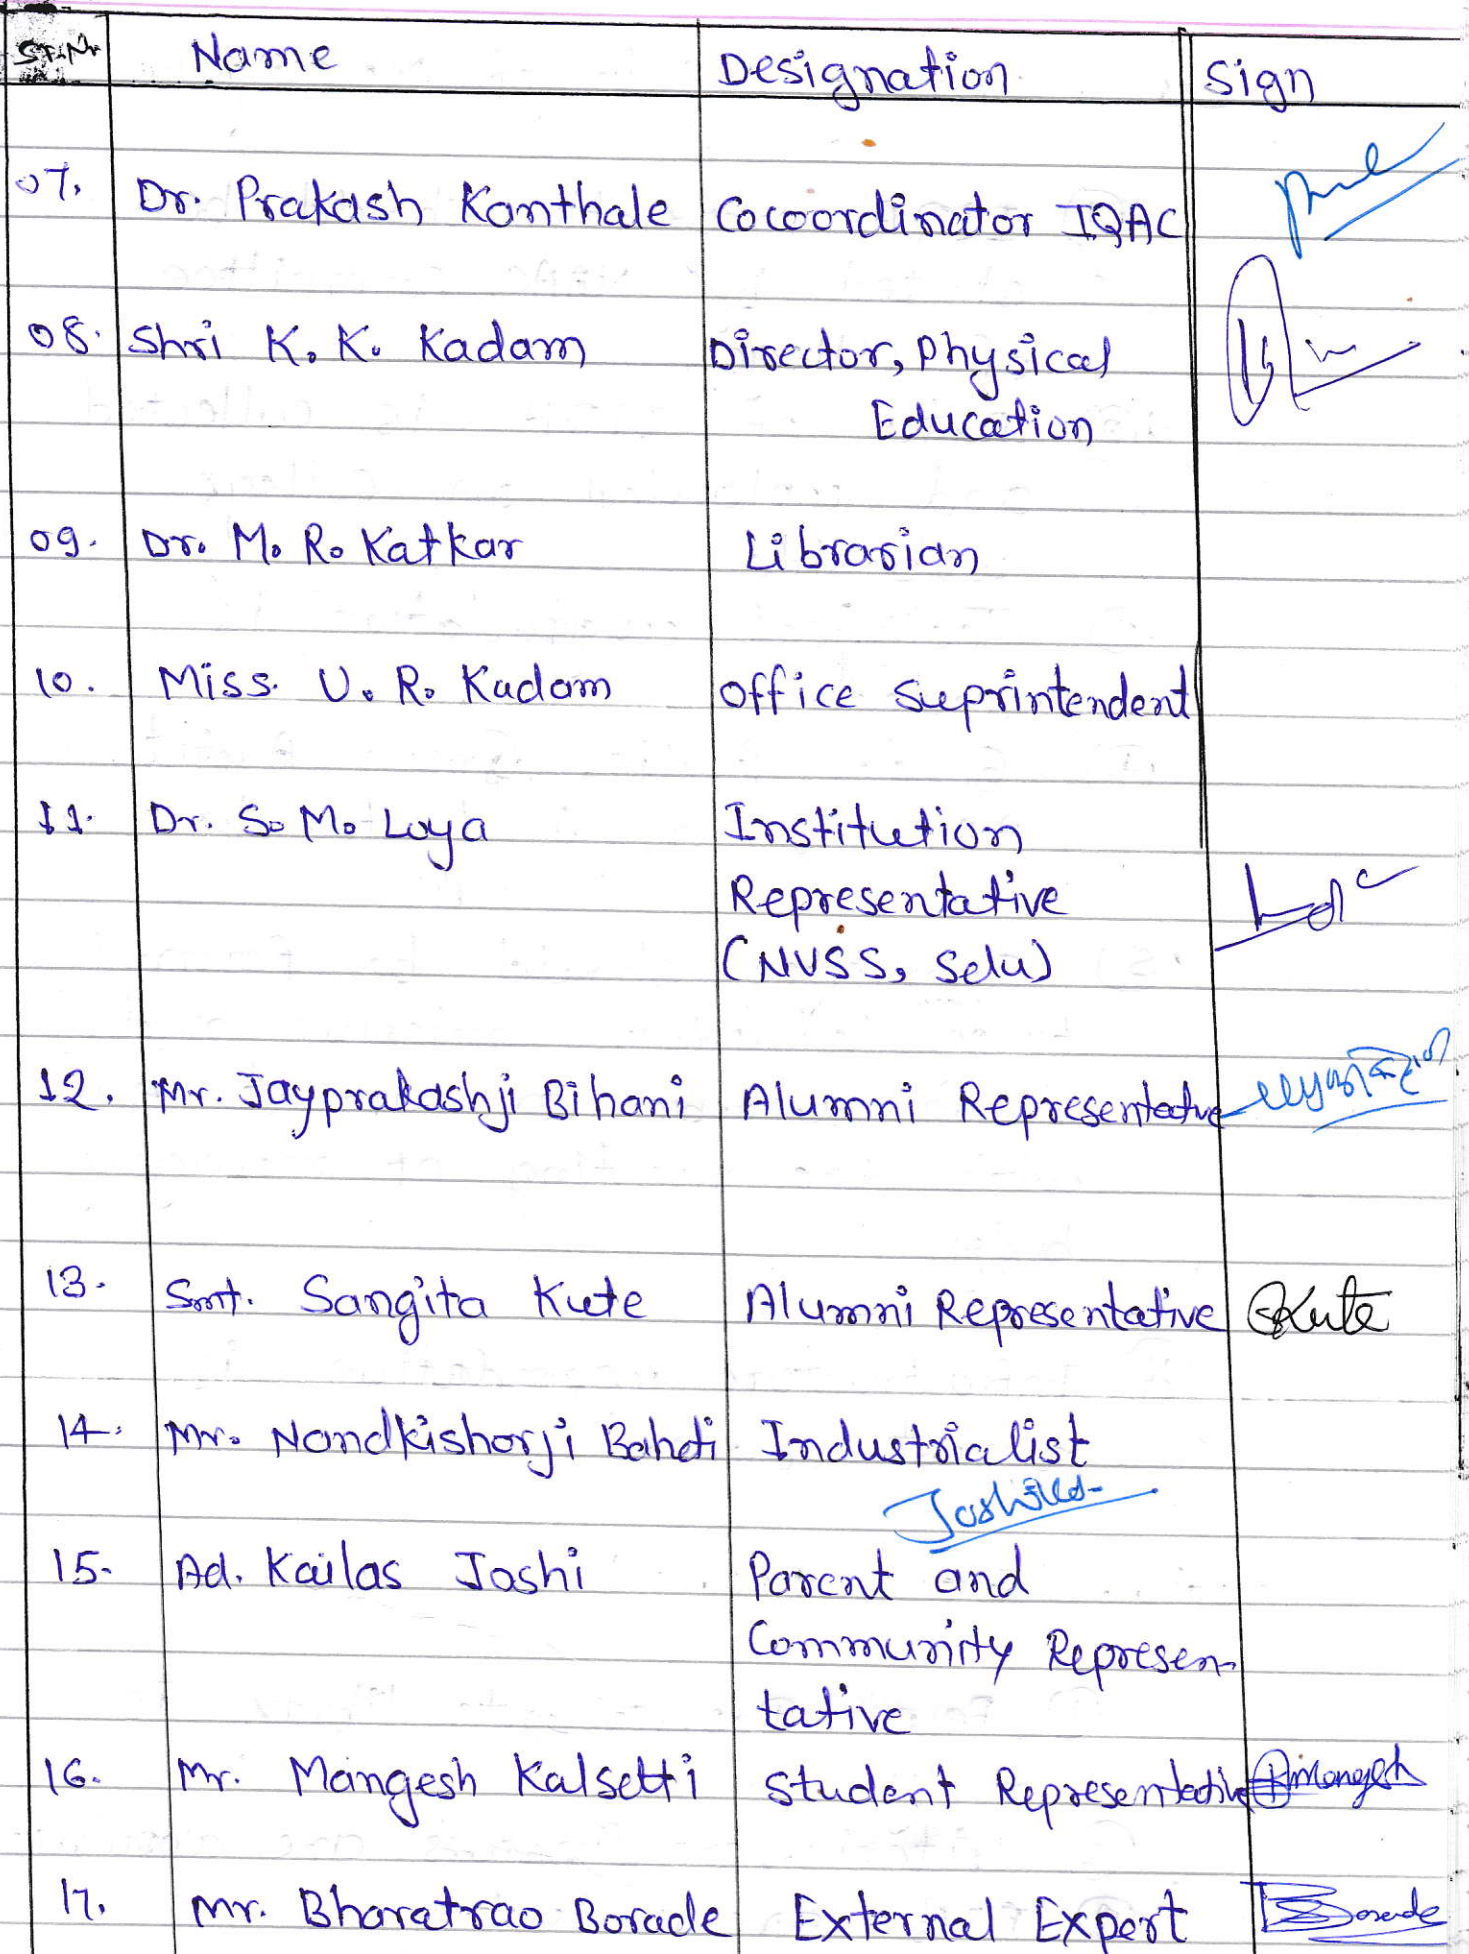 Sr.No Name Designation Sign
07. Dr. Prakash Kanthale Cocoordinator IQAC
08. Shri K. K. Kadam Director, Physical
Education
09. Dr. M. R. Katkar Librarian
10. Miss. U. R. Kadam Office Suprintendent
11. Dr. S. M. Loya Institution
Representative
(NVSS, Selu)
12. Mr. Jayprakashji Bihani Alumni Representative
13. Smt. Sangita Kute Alumni Representative Kute
14. Mr. Nandkishorji Baheti Industrialist
15. Ad. Kailas Joshi Parent and
Community Represen-
tative
16. Mr. Mangesh Kalsetti Student Representative Mangesh
17. Mr. Bharatrao Borade External Expert Borade